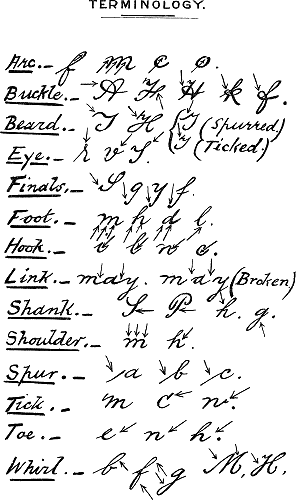 TERMINOLOGY.
Arc. - f m c o.
Buckle. - A H H k f.
Beard. - I H { I (Spurred)
Eye. - r v S. { I (Ticked)
Finals. - S g y f.
Foot. - m h d l.
Hook. - c b n c.
Link. - may. may (Broken)
Shank. - S P h. g.
Shoulder. - m h.
Spur. - a b c.
Tick. - m C n.
Toe. - e n h.
Whirl. - b f g M, H,